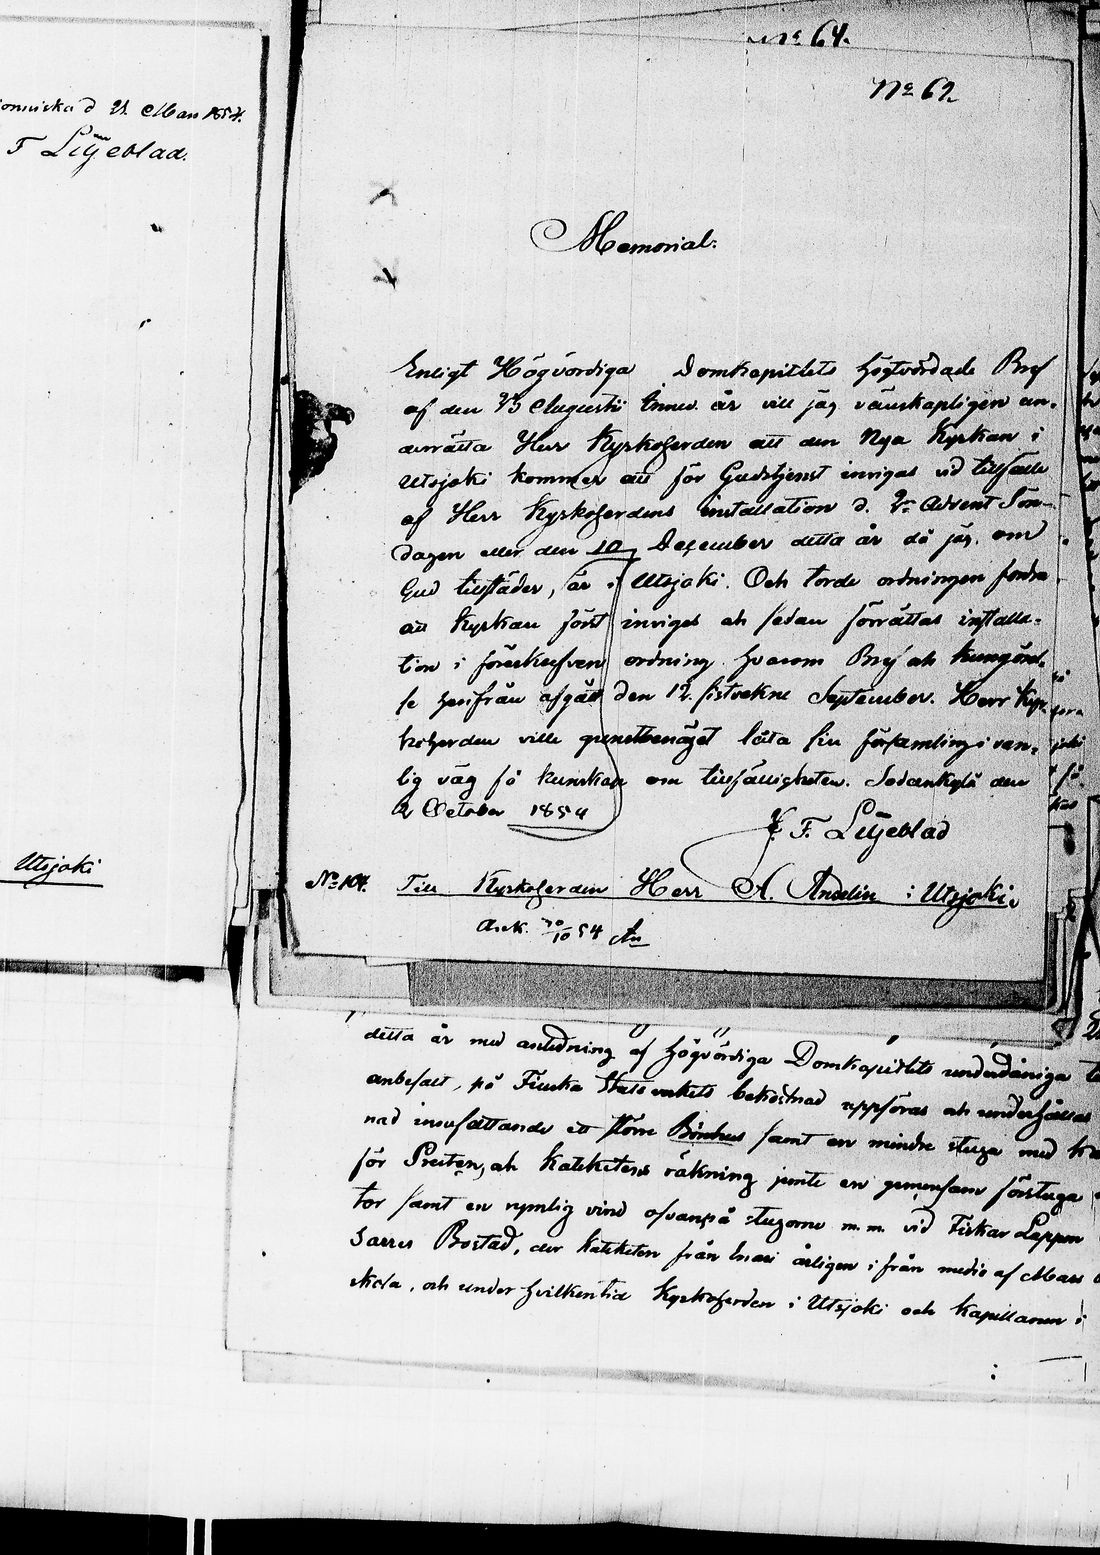 d 21 Mars 1854.
F Liljeblad.
Utsjoki
No 64.
No 62.
Memorial:
Enligt Högvördiga Domkapitlets högtvördade Bref
af den 23 Augusti innev. år vill jag vänskapligen un-
derrätta Herr Kyrkoherden att den Nya Kyrkan i
Utsjoki kommer att för Gudstjenst invigas vid tillfälle
af Herr Kyrkoherdens installation d. 2n Advent Sön-
dagen eller den 10 December detta år då jag, om
Gud tillstäder, är i Utsjoki. Och torde ordningen fordra
att Kyrkan först inviges och sedan förrättas installa-
tion i föreskrefven ordning hvarom Bref och kungörel-
se härifrån afgått den 12 sistvekne September. Herr Kyr-
koherden ville gunstbenäget låta sin församling i van-
lig väg få kunskap om tillfälligheten. Sodankylä den
2 October 1854
F. Liljeblad
No 104. Till Kyrkoherden Herr A. Andelin i Utsjoki.
Ank. 30/10 54 An
detta år med anledning af Högvördiga Domkapitlets underdåniga
anbefalt, på Finska Statsverkets bekostnad uppföras och underhållas
nad innefattande ett större Bönehus samt en mindre stuga med
för Presten och Kateketens räkning jemte en gemensam förstuga
tor samt en rymlig vind ofvanpå stugorne m.m. vid Fiskar Lappen
Sarres Bostad, der Kateketen från Enare årligen ifrån medio af Mars
skola, och under hvilken tid Kyrkoherden i Utsjoki och Kapellanen i